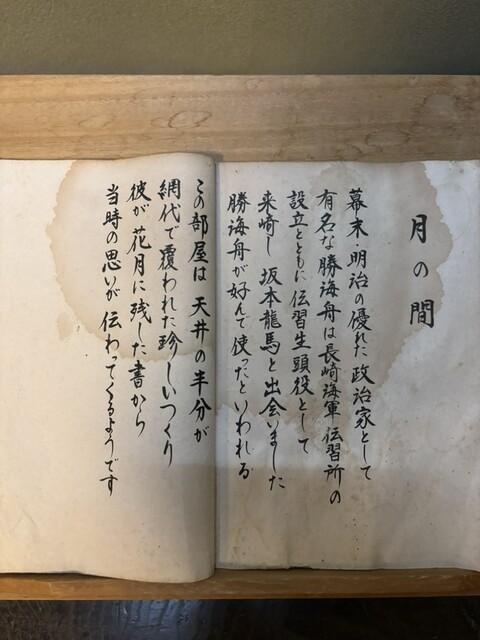 月の間
幕末・明治の優れた政治家として
有名な勝海舟は長崎海軍伝習所の
設立とともに伝習生頭役として
来崎し 坂本龍馬と出会いました
勝海舟が好んで使ったといわれる
この部屋は 天井の半分が
網代で覆われた珍しいつくり
彼が花月に残した書から
当時の思いが伝わってくるようです